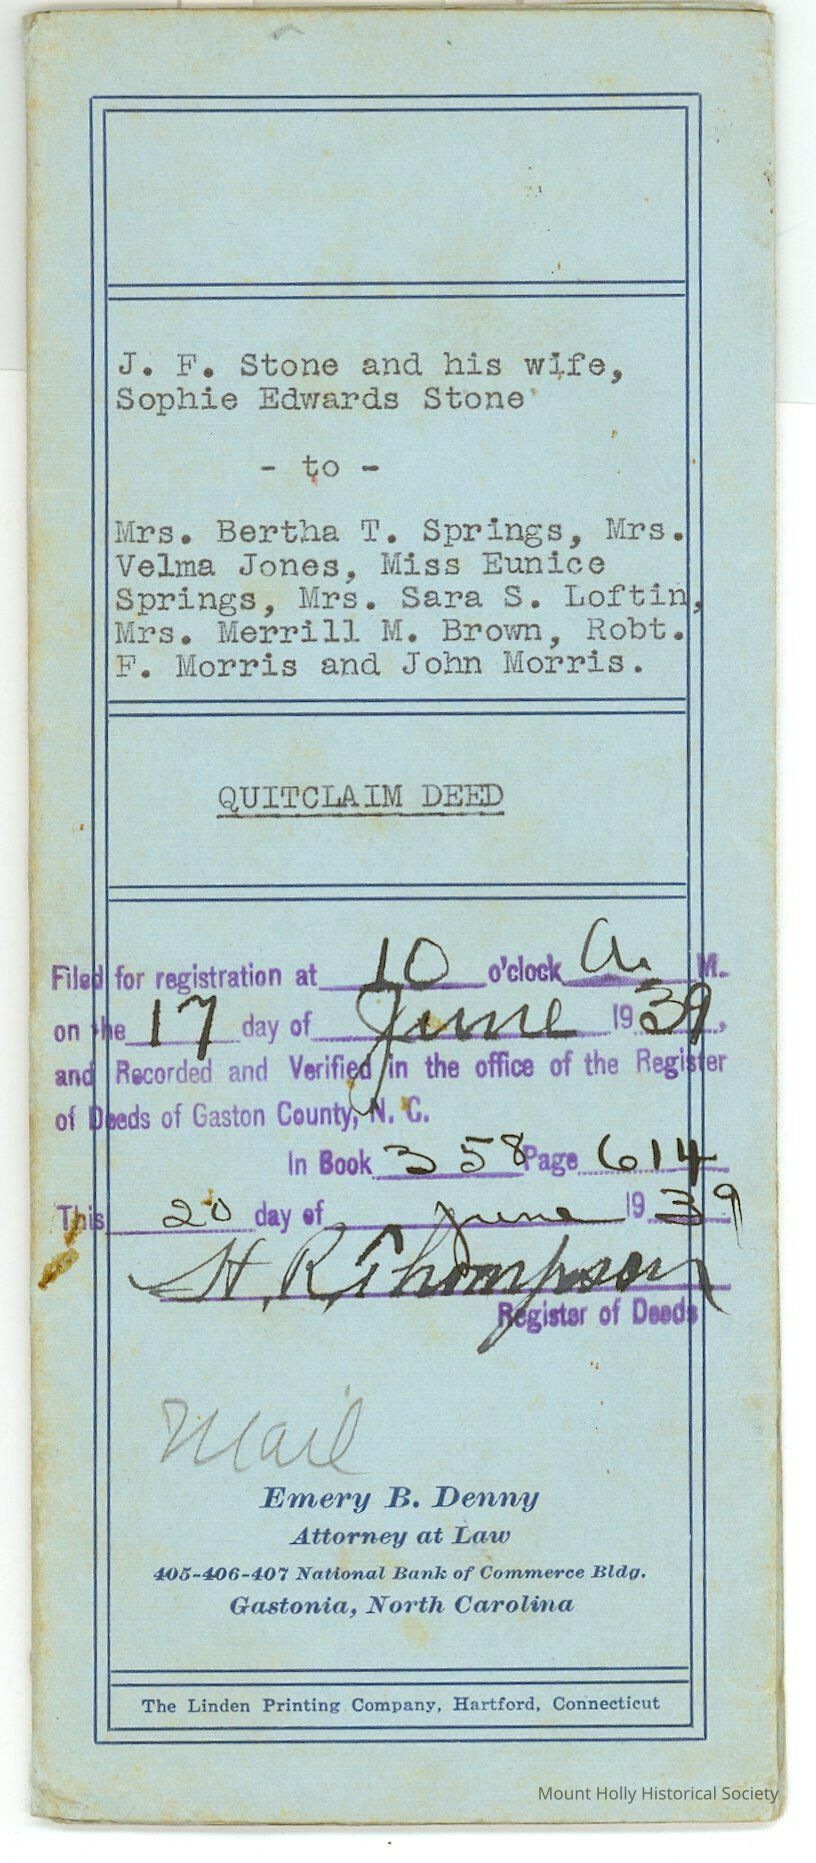 J. F. Stone and his wife,
Sophie Edwards Stone
- to -
Mrs. Bertha T. Springs, Mrs.
Velma Jones, Miss Eunice
Springs, Mrs. Sara S. Loftin,
Mrs. Merrill M. Brown, Robt.
F. Morris and John Morris.
QUITCLAIM DEED
Filed for registration at 10 o'clock A. M.
on the 17 day of June 1939,
and Recorded and Verified in the office of the Register
of Deeds of Gaston County, N. C.
In Book 358 Page 614
This 20 day of June 1939
H. R. Thompson
Register of Deeds
Mail
Emery B. Denny
Attorney at Law
405-406-407 National Bank of Commerce Bldg.
Gastonia, North Carolina
The Linden Printing Company, Hartford, Connecticut
Mount Holly Historical Society